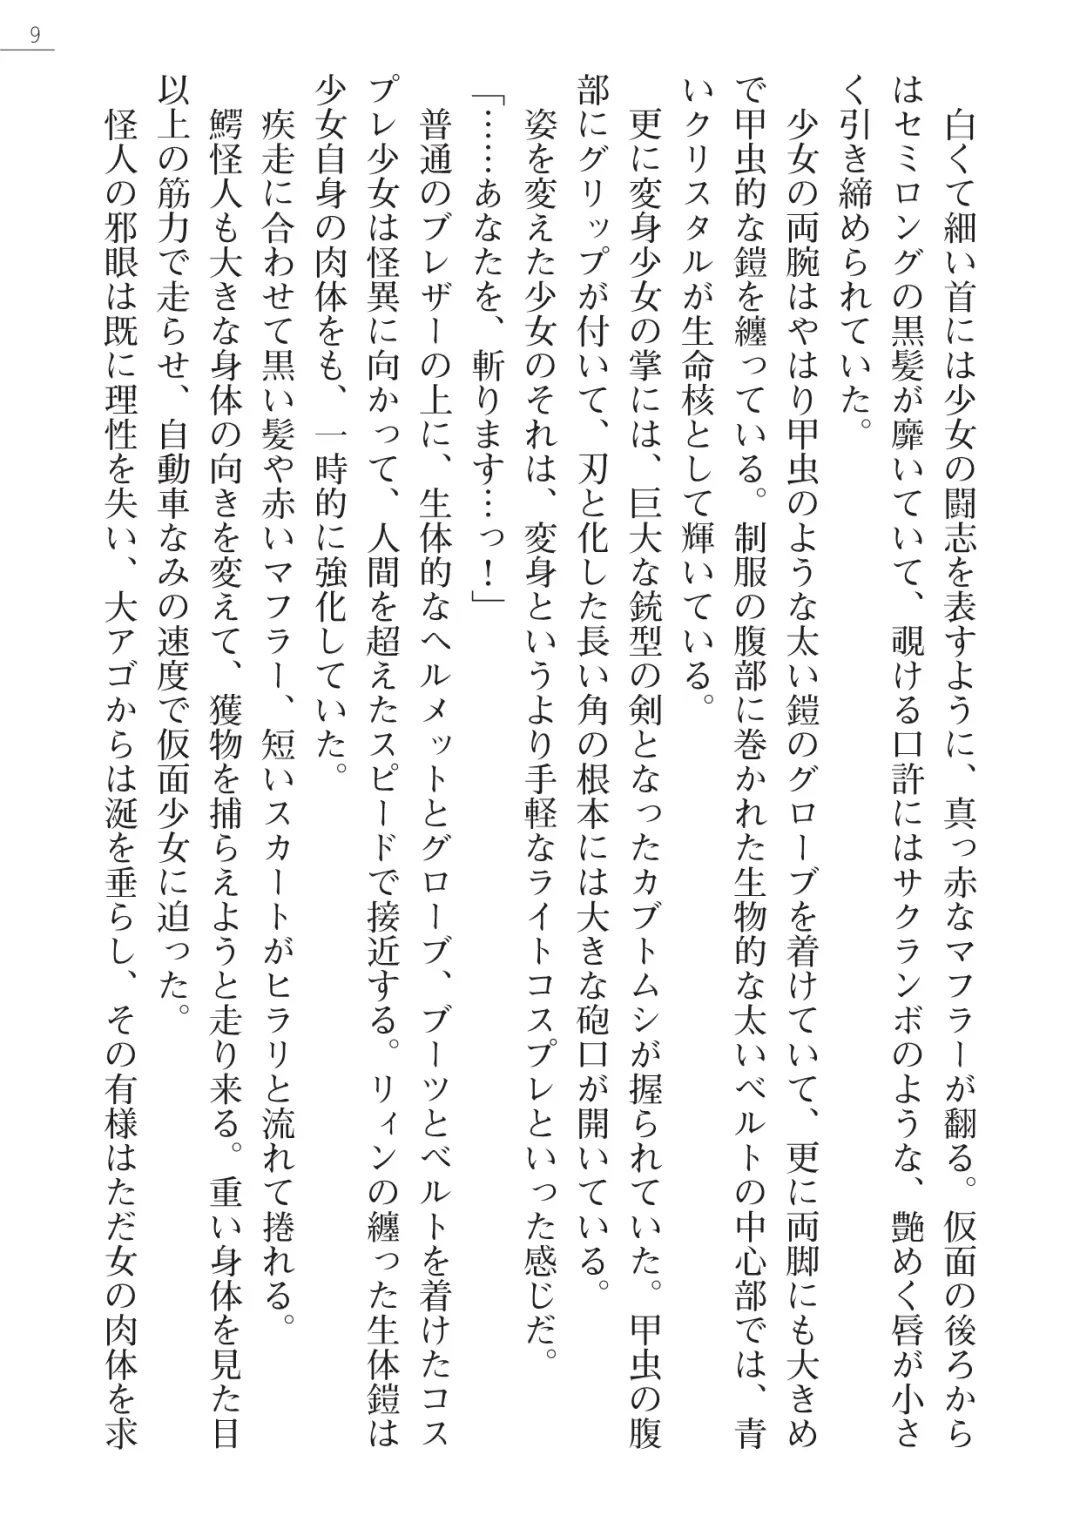 9
白くて細い首には少女の闘志を表すように、真っ赤なマフラーが翻る。仮面の後ろから
はセミロングの黒髪が靡いていて、覗ける口許にはサクランボのような、艶めく唇が小さ
く引き締められていた。
少女の両腕はやはり甲虫のような太い鎧のグローブを着けていて、更に両脚にも大きめ
で甲虫的な鎧を纏っている。制服の腹部に巻かれた生物的な太いベルトの中心部では、青
いクリスタルが生命核として輝いている。
更に変身少女の掌には、巨大な銃型の剣となったカブトムシが握られていた。甲虫の腹
部にグリップが付いて、刃と化した長い角の根本には大きな砲口が開いている。
姿を変えた少女のそれは、変身というより手軽なライトコスプレといった感じだ。
「……あなたを、斬ります…っ！」
普通のブレザーの上に、生体的なヘルメットとグローブ、ブーツとベルトを着けたコス
プレ少女は怪異に向かって、人間を超えたスピードで接近する。リィンの纏った生体鎧は
少女自身の肉体をも、一時的に強化していた。
疾走に合わせて黒い髪や赤いマフラー、短いスカートがヒラリと流れて捲れる。
鰐怪人も大きな身体の向きを変えて、獲物を捕らえようと走り来る。重い身体を見た目
以上の筋力で走らせ、自動車なみの速度で仮面少女に迫った。
怪人の邪眼は既に理性を失い、大アゴからは涎を垂らし、その有様はただ女の肉体を求